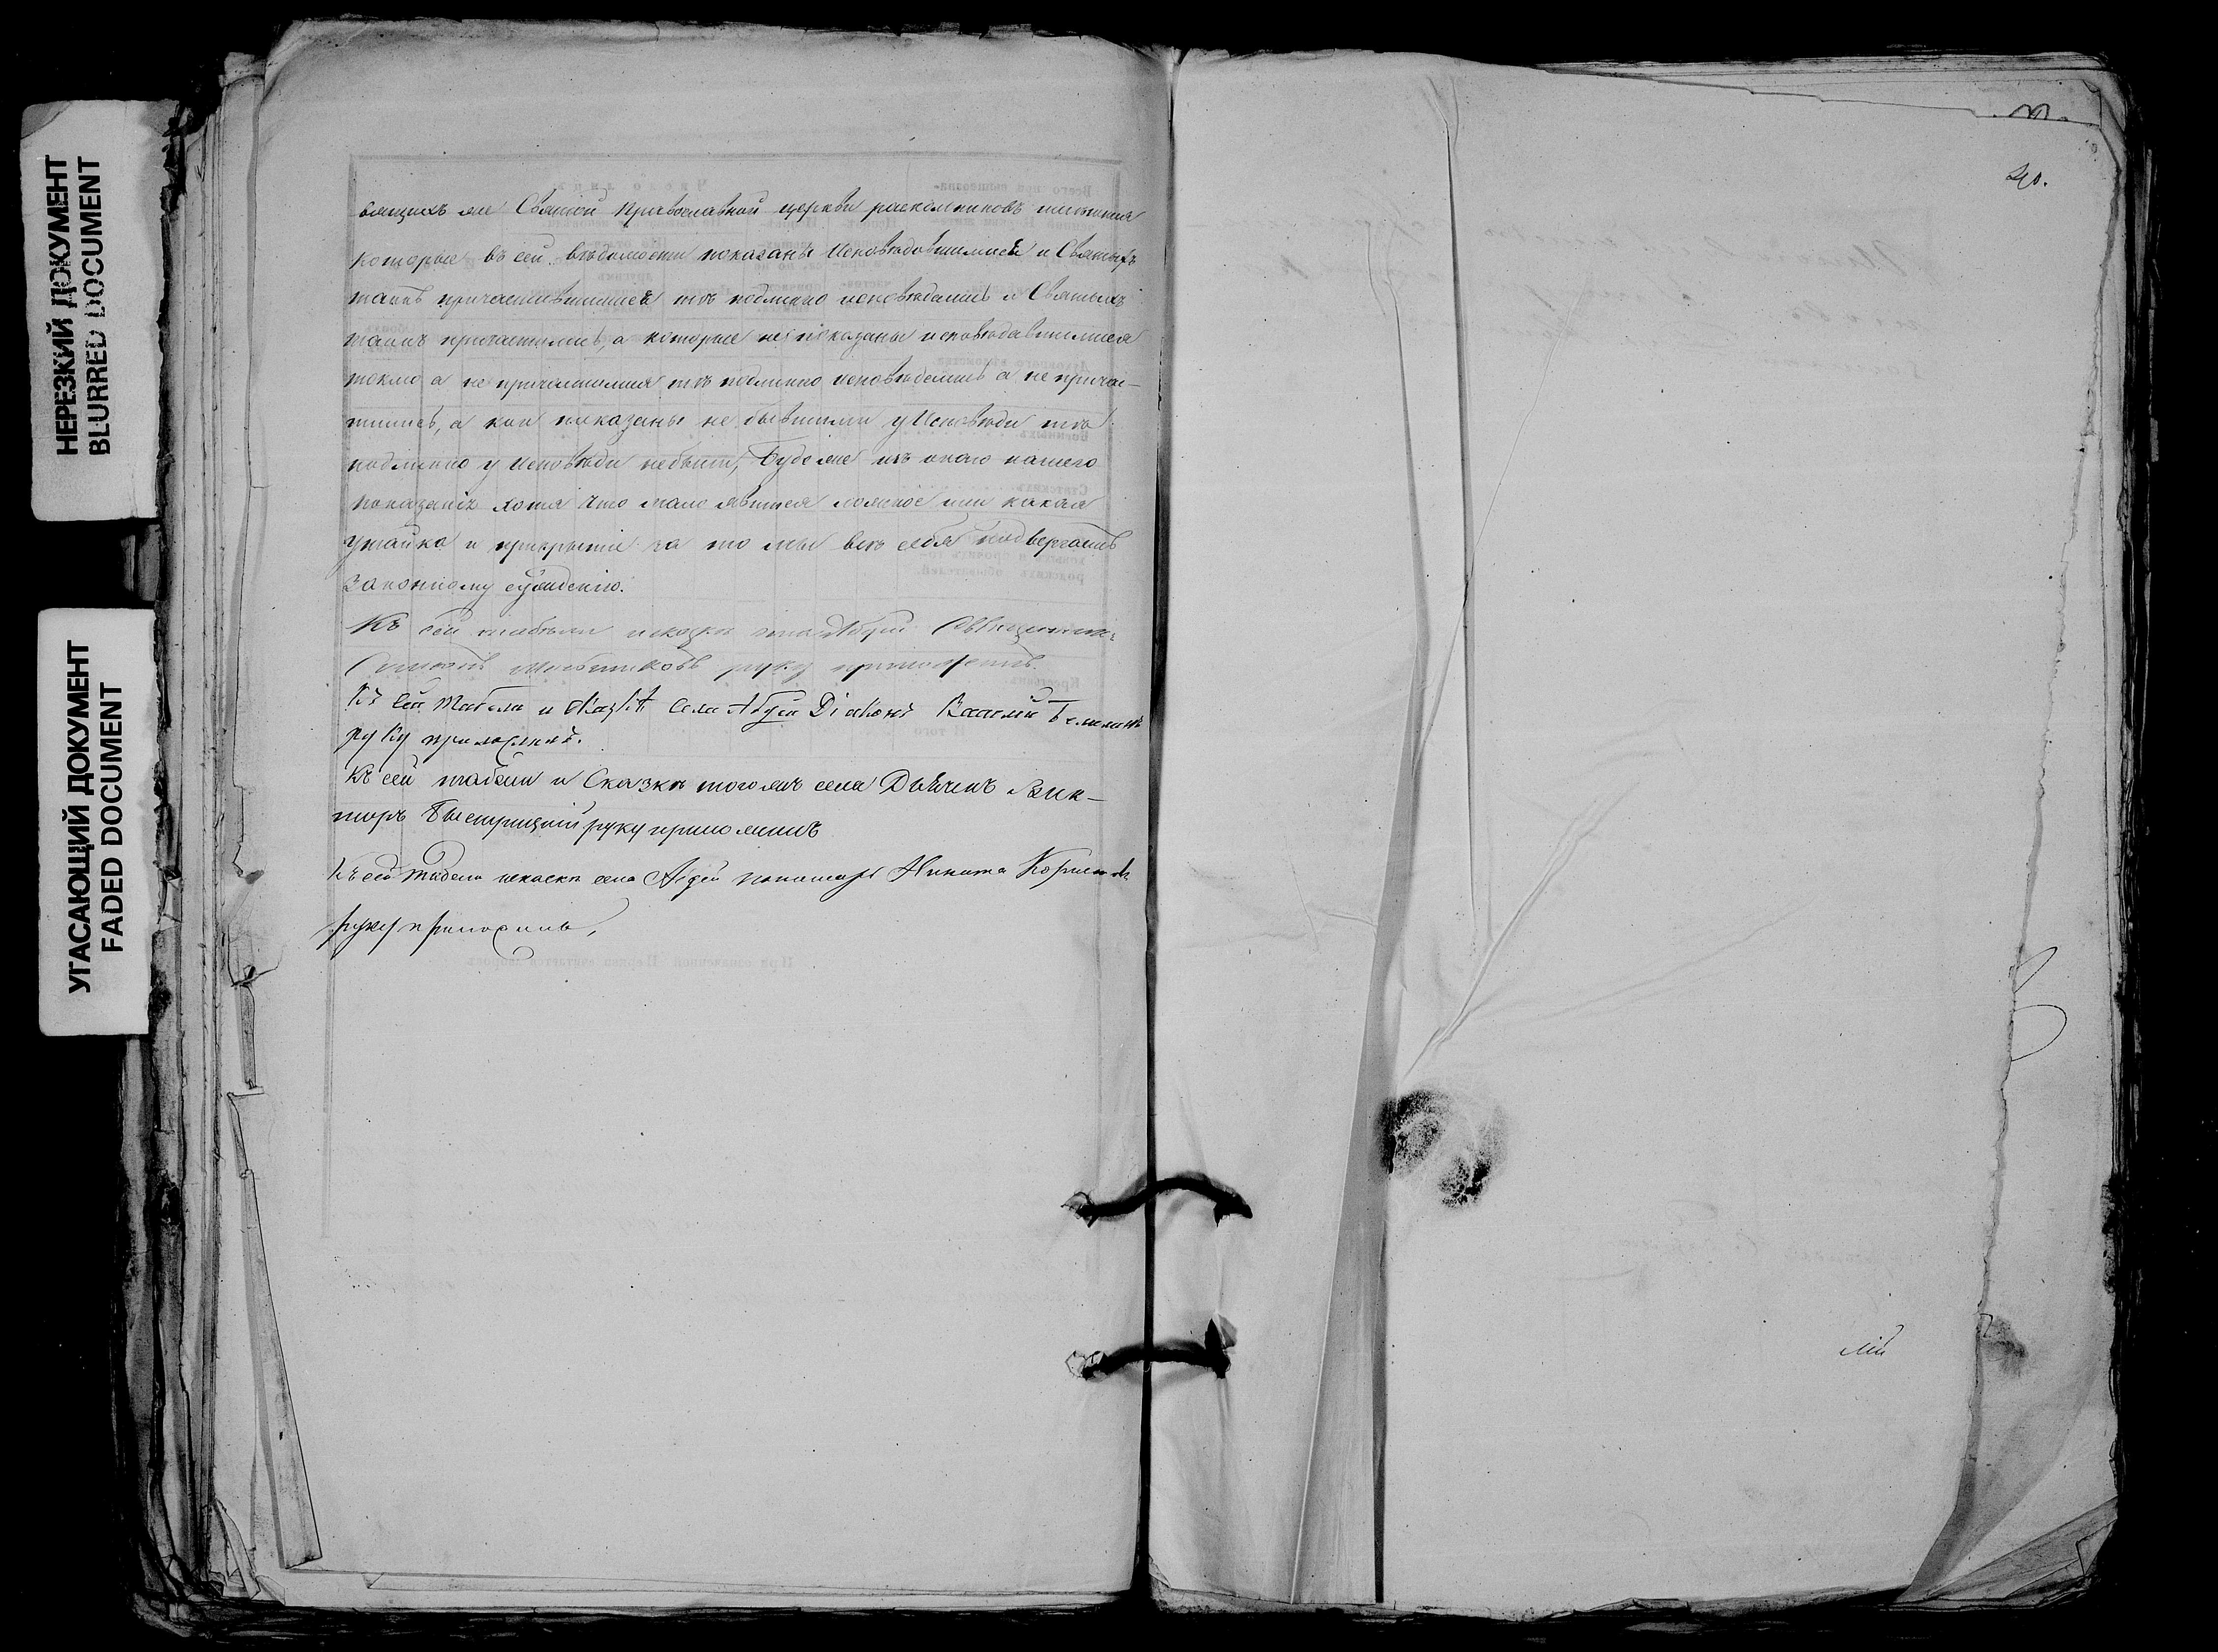 НЕРЕЗКИЙ ДОКУМЕНТ
BLURRED DOCUMENT
УГАСАЮЩИЙ ДОКУМЕНТ
FADED DOCUMENT
Святой православной церкви раскольниковъ
которые въ сей вѣдомости показаны исповѣдовшимися и Святыхъ
таинъ причастившимися тѣ подлинно исповѣдались и Святыхъ
таинъ причастились, а которые показаны исповѣдавшимися
токмо а не причастились тѣ подлинно исповѣдались а не причас-
тились, а кои показаны не бывшими у Исповѣди тѣ
подлинно у Исповѣди небыли, Буде же изъ онаго нашего
показанія хотя что мало явится ложное или какая
утайка и прикрытіе за то мы всѣ себя подвергаемъ
законному сужденію.
Къ сей табели и сказкѣ села Абди Священникъ
руку приложилъ.
Къ сей табели и сказкѣ села Абди Діаконъ Василій
руку приложилъ.
Къ сей табели и Сказкѣ тогожъ села Дьячекъ Вик-
торъ Быстрицкій руку приложилъ
Къ сей табели искаскѣ села Абди пономарь Никита
руку приложилъ,
40.